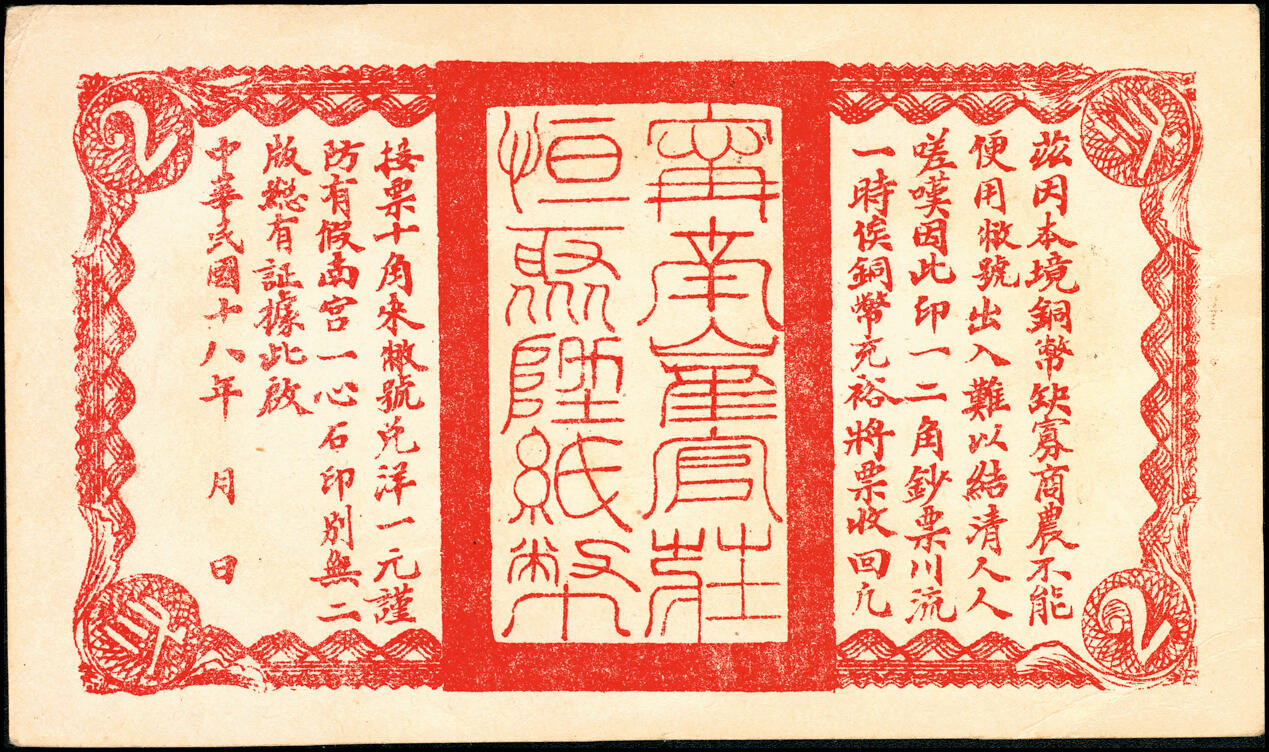 2
茲因本境銅幣缺寡商農不能
便用敝號出入難以結清人人
嗟嘆因此印一二角鈔票川流
一時俟銅幣充裕將票收回凡
甯南崔官莊
恒聚陞紙幣
接票十角來敝號兌洋一元謹
防有假南宮一心石印別無二
版有証據此啟
中華民國十八年 月 日
2